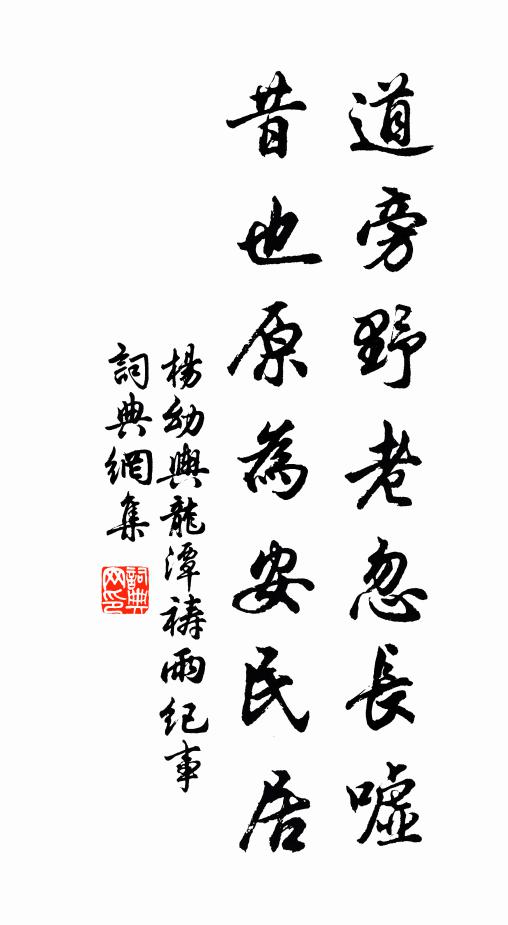 道旁野老忽長噓
昔也原為安民居
楊幼輿龍潭禱雨紀事
詞典網集
詞典网印